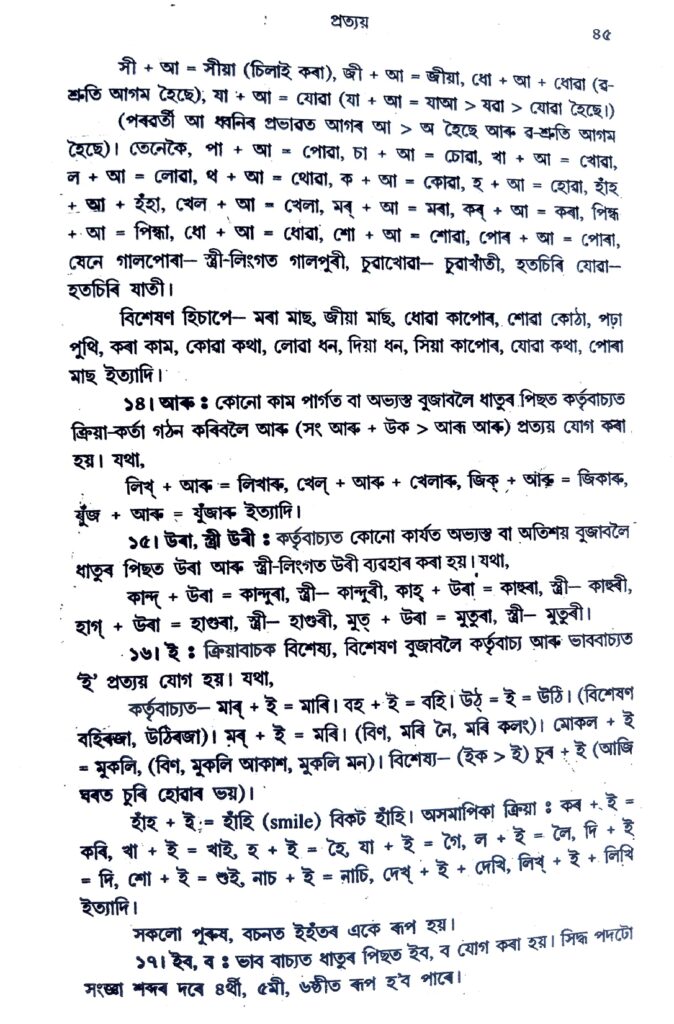 প্ৰত্যয়
৪৫
সী + আ = সীয়া (চিলাই কৰা), জী + আ = জীয়া, ধো + আ + ধোৱা (ৱ-
শ্ৰুতি আগম হৈছে), যা + আ = যোৱা (যা + আ = যাআ > যৱা > যোৱা হৈছে।)
(পৰৱৰ্তী আ ধ্বনিৰ প্ৰভাৱত আগৰ আ > অ হৈছে আৰু ৱ-শ্ৰুতি আগম
হৈছে)। তেনেকৈ, পা + আ = পোৱা, চা + আ = চোৱা, খা + আ = খোৱা,
ল + আ = লোৱা, থ + আ = থোৱা, ক + আ = কোৱা, হ + আ = হোৱা, হাঁহ
+ আ + হঁহা, খেল + আ = খেলা, মৰ্ + আ = মৰা, কৰ্ + আ = কৰা, পিন্ধ
+ আ = পিন্ধা, ধো + আ = ধোৱা, শো + আ = শোৱা, পোৰ + আ = পোৰা,
যেনে গালপোৰা— স্ত্ৰী-লিংগত গালপুৰী, চুৱাখোৱা— চুৱাখাঁতী, হতচিৰি যোৱা—
হতচিৰি যাতী।
বিশেষণ হিচাপে— মৰা মাছ, জীয়া মাছ, ধোৱা কাপোৰ, শোৱা কোঠা, পঢ়া
পুথি, কৰা কাম, কোৱা কথা, লোৱা ধন, দিয়া ধন, সিয়া কাপোৰ, যোৱা কথা, পোৰা
মাছ ইত্যাদি।
১৪। আৰু : কোনো কাম পাৰ্গত বা অভ্যস্ত বুজাবলৈ ধাতুৰ পিছত কৰ্তৃবাচ্যত
ক্ৰিয়া-কৰ্তা গঠন কৰিবলৈ আৰু (সং আৰু + উক > আৰূ আৰু) প্ৰত্যয় যোগ কৰা
হয়। যথা,
লিখ্ + আৰু = লিখাৰু, খেল্ + আৰু + খেলাৰু, জিক্ + আৰু = জিকাৰু,
যুঁজ + আৰু = যুঁজাৰু ইত্যাদি।
১৫। উৰা, স্ত্ৰী উৰী : কৰ্তৃবাচ্যত কোনো কাৰ্যত অভ্যস্ত বা অতিশয় বুজাবলৈ
ধাতুৰ পিছত উৰা আৰু স্ত্ৰী-লিংগত উৰী ব্যৱহাৰ কৰা হয়। যথা,
কান্দ্ + উৰা = কান্দুৰা, স্ত্ৰী— কান্দুৰী, কাহ্ + উৰা = কাহুৰা, স্ত্ৰী— কাহুৰী,
হাগ্ + উৰা = হাগুৰা, স্ত্ৰী— হাগুৰী, মূত্ + উৰা = মুতুৰা, স্ত্ৰী— মুতুৰী।
১৬। ই : ক্ৰিয়াবাচক বিশেষ্য, বিশেষণ বুজাবলৈ কৰ্তৃবাচ্য আৰু ভাববাচ্যত
‘ই’ প্ৰত্যয় যোগ হয়। যথা,
কৰ্তৃবাচ্যত— মাৰ্ + ই = মাৰি। বহ + ই = বহি। উঠ্ = ই = উঠি। (বিশেষণ
বহিৰজা, উঠিৰজা)। মৰ্ + ই = মৰি। (বিণ, মৰি নৈ, মৰি কলং)। মোকল + ই
= মুকলি, (বিণ, মুকলি আকাশ, মুকলি মন)। বিশেষ্য— (ইক > ই) চুৰ + ই (আজি
ঘৰত চুৰি হোৱাৰ ভয়)।
হাঁহ + ই = হাঁহি (smile) বিকট হাঁহি। অসমাপিকা ক্ৰিয়া : কৰ + ই =
কৰি, খা + ই = খাই, হ + ই = হৈ, যা + ই = গৈ, ল + ই = লৈ, দি + ই
= দি, শো + ই = শুই, নাচ + ই = নাচি, দেখ্ + ই + দেখি, লিখ্ + ই + লিখি
ইত্যাদি।
সকলো পুৰুষ, বচনত ইহঁতৰ একে ৰূপ হয়।
১৭। ইব, ব : ভাব বাচ্যত ধাতুৰ পিছত ইব, ব যোগ কৰা হয়। সিদ্ধ পদটো
সংজ্ঞা শব্দৰ দৰে ৪ৰ্থী, ৫মী, ৬ষ্ঠীত ৰূপ হ’ব পাৰে।